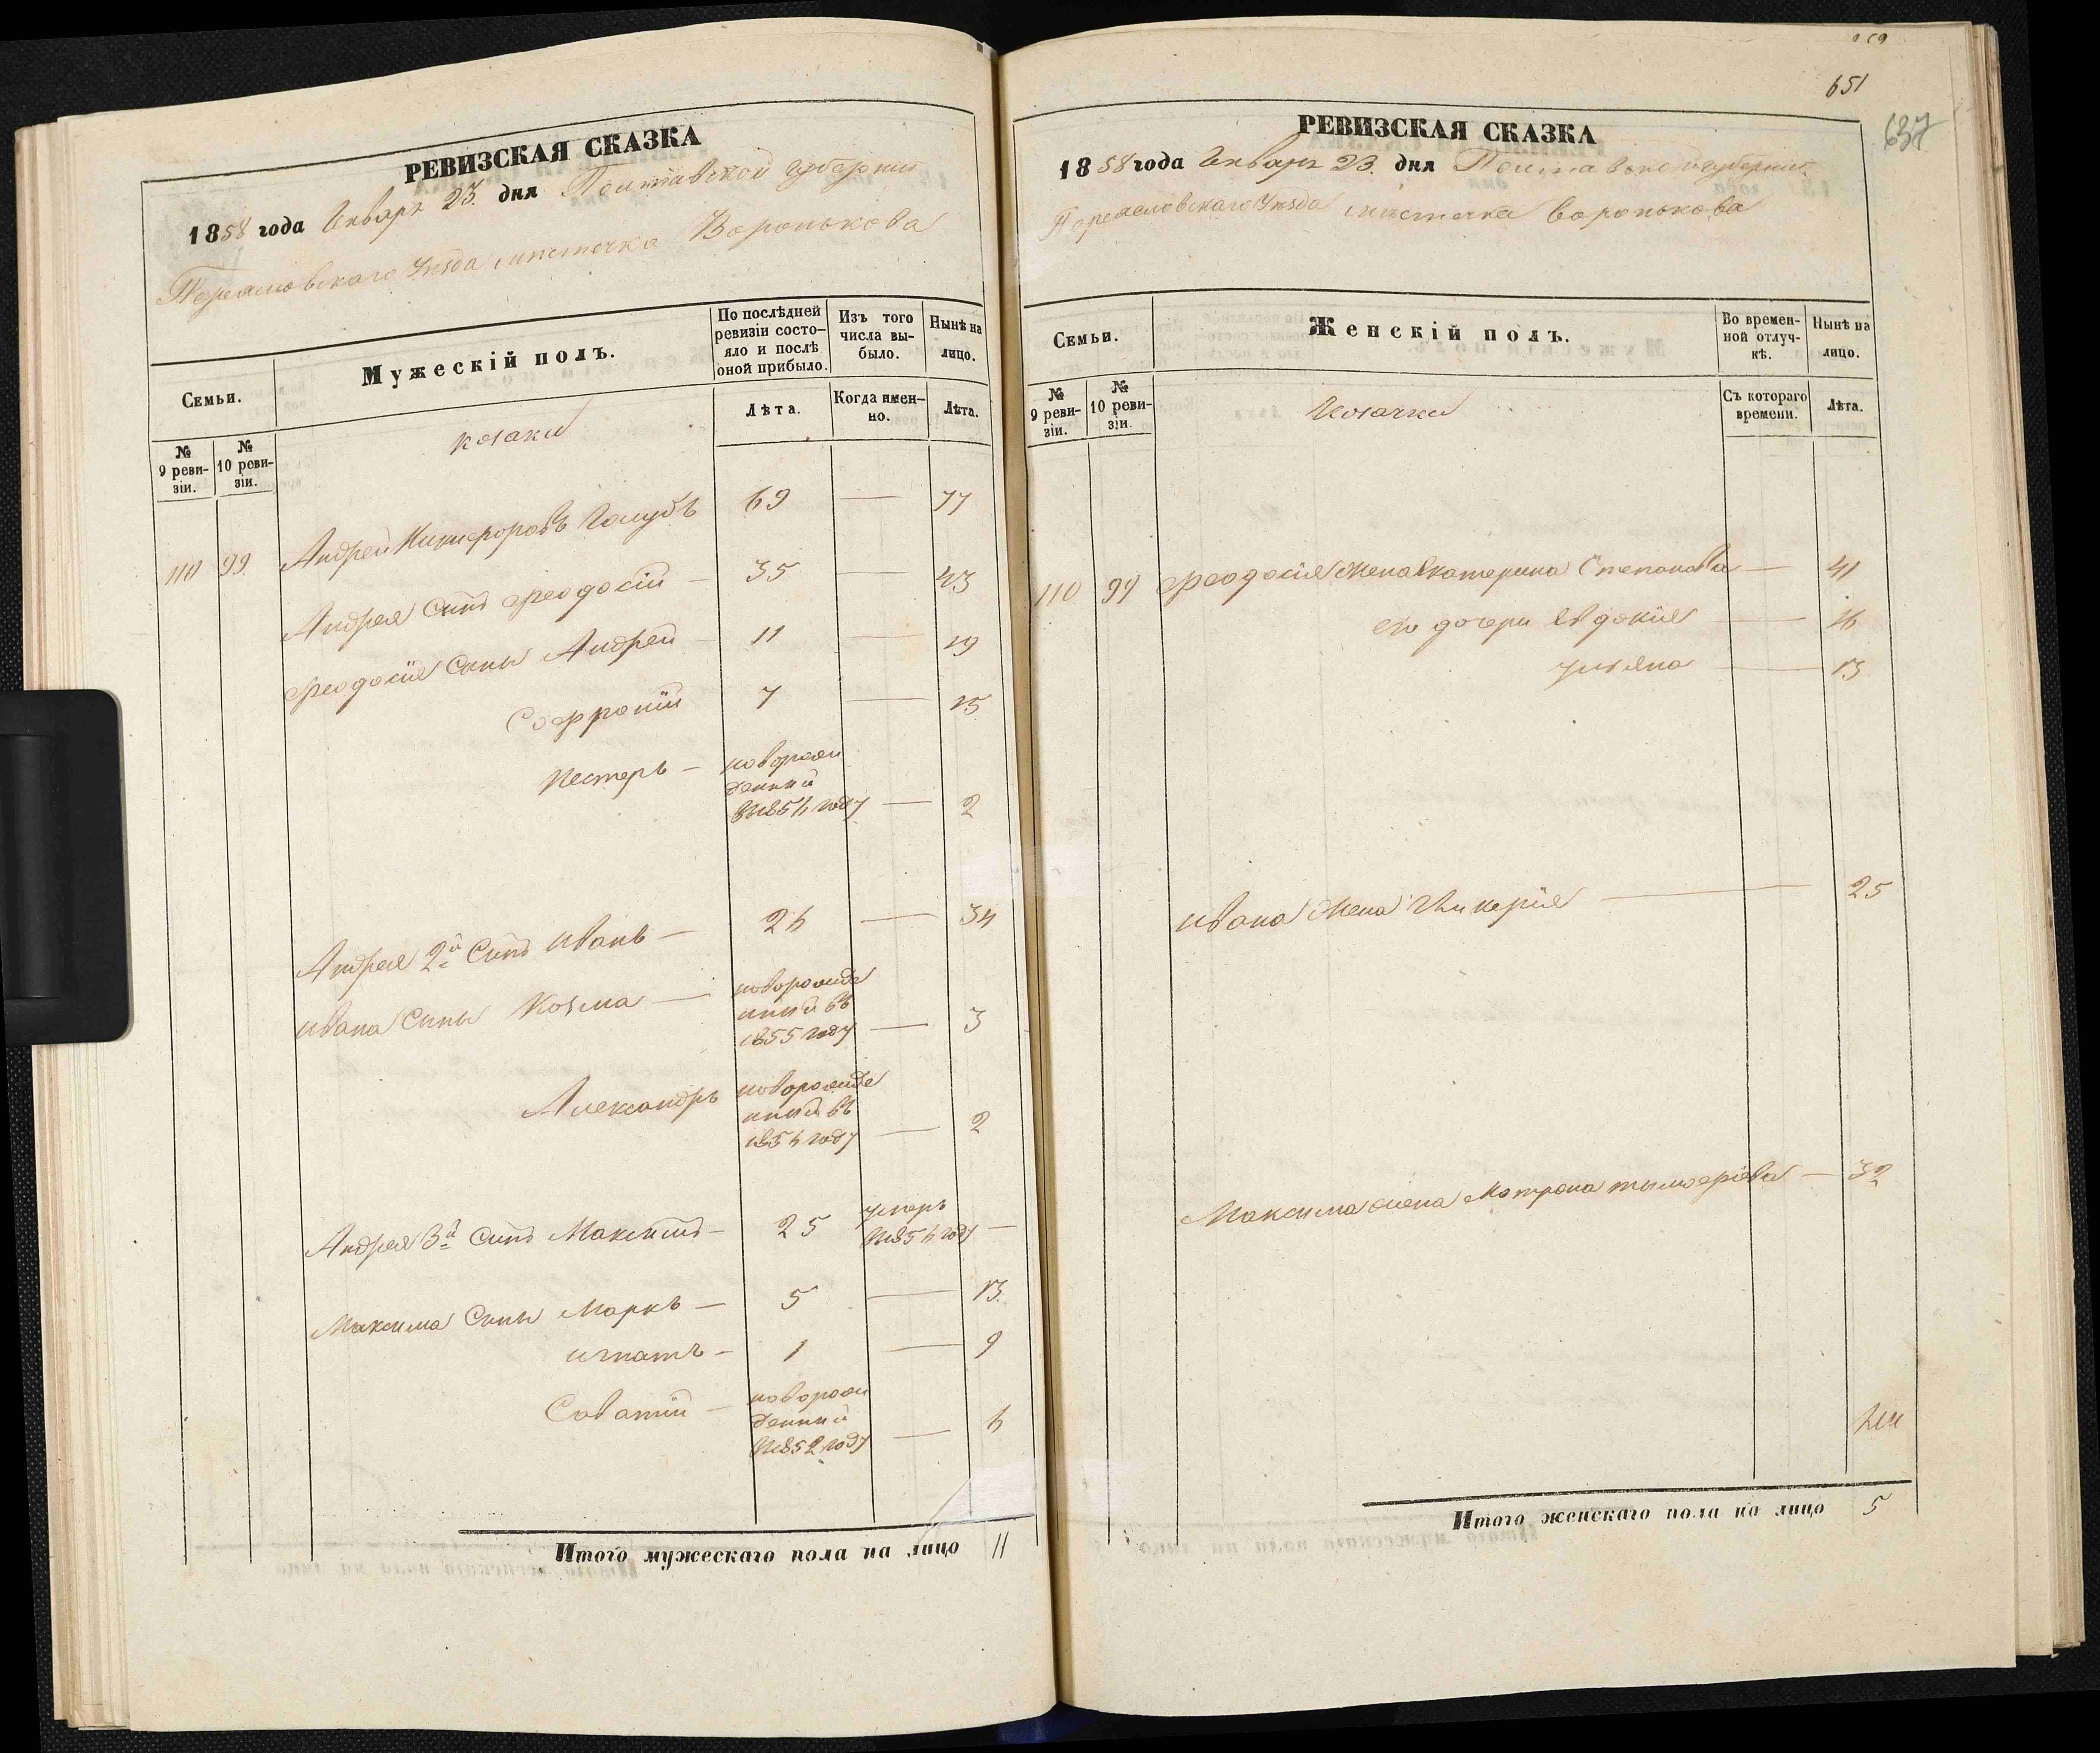 РЕВИЗСКАЯ СКАЗКА
1858 года Января 23. дня Полтавской Губернии
Переясловскаго Уѣзда мѣстечка Воронькова
Семьи.
Мужескій полъ.
По послѣдней ревизіи состояло и послѣ оной прибыло.
Изъ того числа выбыло.
Нынѣ на лицо.
№ 9 ревизіи.
№ 10 ревизіи.
козаки
Лѣта.
Когда именно.
Лѣта.
110 99. Андрей Никифоровъ Голубъ 69 — 77
Андрея Сынъ Феодосій — 35 — 43
Феодосія Сыны Андрей — 11 — 19
Софроній 7 — 15
Нестеръ — новорож
денный
въ 1856 году — 2
Андрея 2й Сынъ Иванъ — 26 — 34
Ивана Сыны Козма — новорожде
нный въ
1855 году — 3
Александръ новорожде
нный въ
1856 году — 2
Андрея 3й Сынъ Максимъ — 25 умеръ
въ 1856 году —
Максима Сыны Маркъ — 5 — 13.
Игнатъ — 1 — 9
Саватій — новорож
денный
въ 1852 году — 6
Итого мужескаго пола на лицо 11
651
637
РЕВИЗСКАЯ СКАЗКА
1858 года Января 23. дня Полтавской Губернии
Переясловскаго Уѣзда мѣстечка Воронькова
Семьи.
Женскій полъ.
Во временной отлучкѣ.
Нынѣ на лицо.
№ 9 ревизіи.
№ 10 ревизіи.
Козачки
Съ котораго времени.
Лѣта.
110 99 Феодосія Жена Екатерина Степанова — 41
его дочери Евдокія — 16
Ульяна — 13
Ивана Жена Гликерія — 25
Максима жена Матрона — 32
Итого женскаго пола на лицо 5